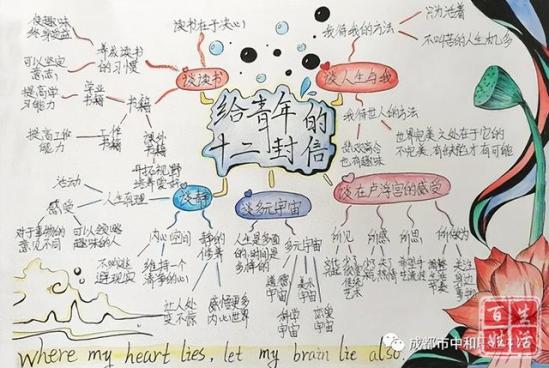 给青年的
十二封信
谈读书
读书在于决心
养成读书
的习惯
使趣味
终身受益
可以坚定
意志
书籍
学业
书籍
提高学
习能力
工作
书籍
提高工作
能力
课外
书籍
开拓视野
培养爱好
谈人生与我
我待我的方法
只为活着
不叫苦的人生机会多
我待世人的方法
悲欢离合
也有趣味
世界完美之处在于它的
不完美,有缺陷才有可能
谈静
人生乐理
活动
感受
对于事物的
意见不同
可以领略
趣味的人
心内空间
不叫逃
避现实
维持一个
清净的心
静的
修养
让人处
变不惊
感悟更多
内心世界
谈多元宇宙
人生是多面
的,时间是
多样的
多元宇宙
道德
宇宙
科学
宇宙
美术
宇宙
恋爱
宇宙
谈在卢浮宫的感受
所见
所感
所思
传统
艺术
关注
身边
事物
where my heart lies, let my brain lie also.
成都市中和
百姓
生活